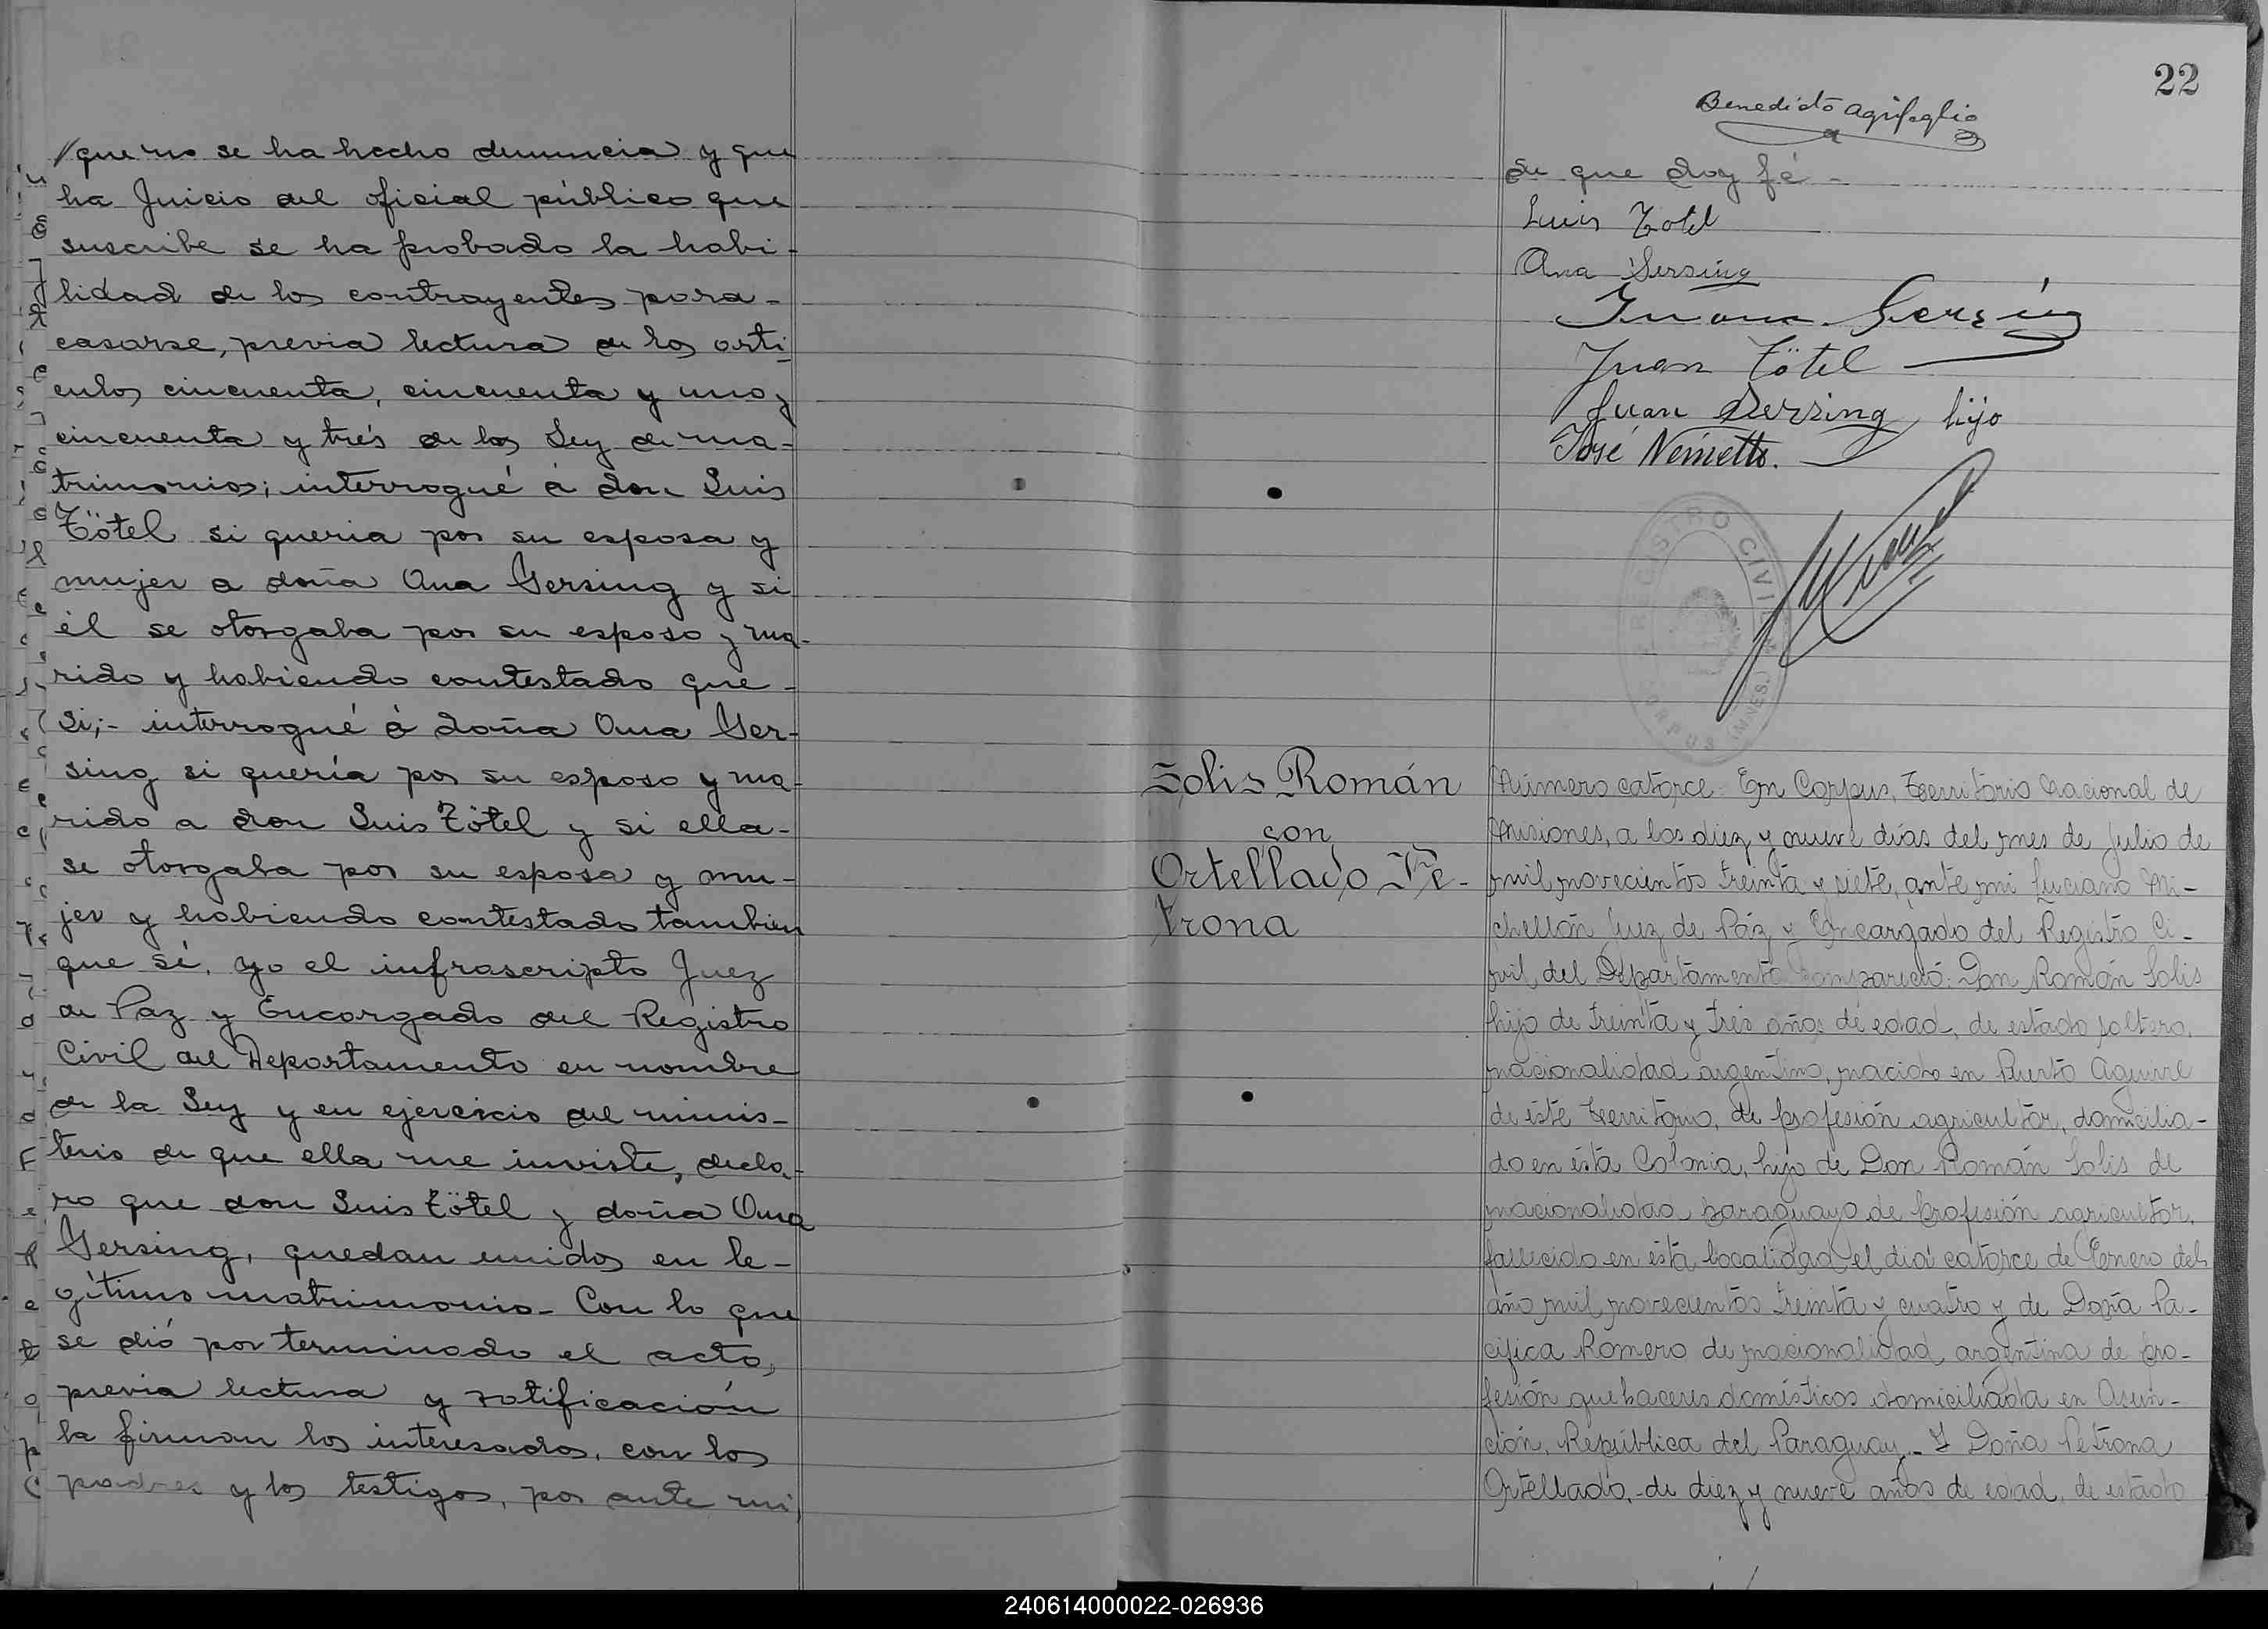 que no se ha hecho denuncia y que
ha Juicio del oficial público que
suscribe se ha probado la habi-
lidad de los contrayentes para-
casarse, previa lectura de los arti-
culos cincuenta, cincuenta y uno y
cincuenta y trés de la Ley de ma-
trimonio; interrogué á don Luis
Tötel si queria por su esposa y
mujer a doña Ana Gersing y si
él se otorgaba por su esposo y ma-
rido y habiendo contestado que-
si;- interrogué á doña Ana Ger-
sing si quería por su esposo y ma-
rido a don Luis Tötel y si ella-
se otorgaba por su esposa y mu-
jer y habiendo contestado tambien
que sí, yo el infrascripto Juez
de Paz y Encargado del Registro
Civil del Departamento en nombre
de la Ley y en ejercicio del minis-
terio de que ella me inviste, decla-
ro que don Luis Tötel y doña Ana
Gersing, quedan unidos en le-
gítimo matrimonio- Con lo que
se dió por terminado el acto,
previa lectura y ratificación
la firman los interesados, con los
padres y los testigos, por ante mi,
22
Benedicto Agrifoglio
de que doy fé-
Luis Totel
Ana Gersing
Gersing
Juan Tötel
Juan Gersing hijo
José
REGISTRO CIVIL
CORPUS (MNES.)
Solis Román
con
Ortellado Pe-
trona
Número catorce. En Corpus, Territorio Nacional de
Misiones, a los diez y nueve días del mes de Julio de
mil novecientos treinta y siete, ante mi Luciano Mi-
chellón Juez de Páz y Encargado del Registro Ci-
vil del Departamento compareció: Don Román Solis
hijo de treinta y tres años de edad, de estado soltero,
nacionalidad argentino, nacido en Puerto Aguirre
de éste Territorio, de profesión agricultor, domicilia-
do en ésta Colonia, hijo de Don Román Solis de
nacionalidad paraguayo de profesión agricultor,
fallecido en ésta localidad el día catorce de Enero del
año mil novecientos treinta y cuatro y de Doña Pa-
cifica Romero de nacionalidad argentina de pro-
fesión quehaceres domésticos domiciliada en Asun-
ción, República del Paraguay.- Y Doña Petrona
Ortellado,- de diez y nueve años de edad, de estado
240614000022-026936